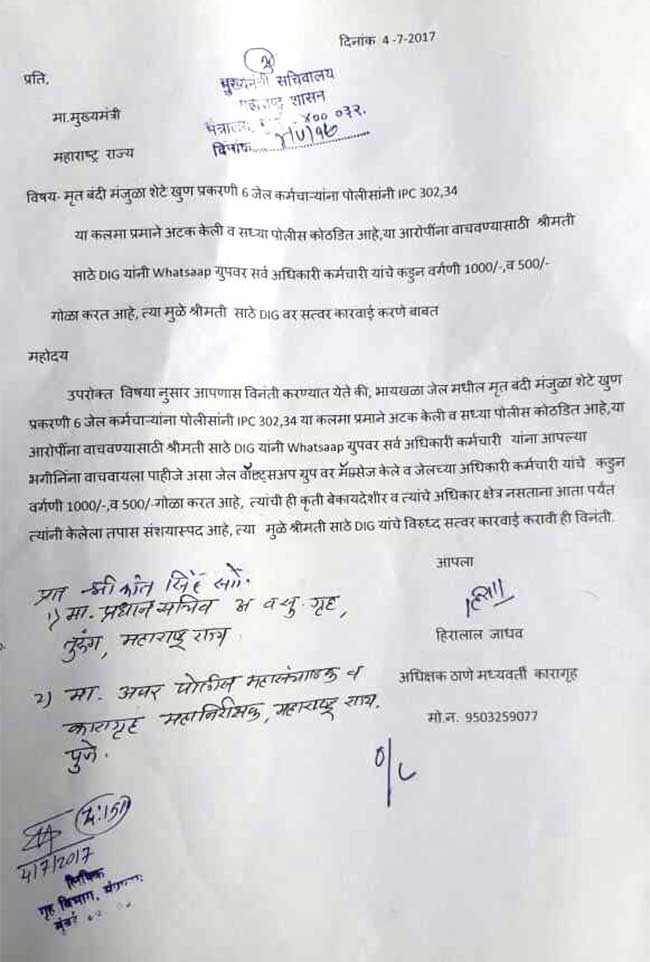 दिनांक 4 -7-2017
प्रति,
मुख्यमंत्री सचिवालय
महाराष्ट्र शासन
मंत्रालय, ४०० ०३२.
दिनांक
मा.मुख्यमंत्री
महाराष्ट्र राज्य
विषय- मृत बंदी मंजुळा शेटे खुण प्रकरणी 6 जेल कर्मचाऱ्यांना पोलीसांनी IPC 302,34
या कलमा प्रमाने अटक केली व सध्या पोलीस कोठडित आहे,या आरोपींना वाचवण्यासाठी श्रीमती
साठे DIG यांनी Whatsaap ग्रुपवर सर्व अधिकारी कर्मचारी यांचे कडुन वर्गणी 1000/-,व 500/-
गोळा करत आहे, त्या मुळे श्रीमती साठे DIG वर सत्वर कारवाई करणे बाबत
महोदय
उपरोक्त विषया नुसार आपणास विनंती करण्यात येते की, भायखळा जेल मधील मृत बंदी मंजुळा शेटे खुण
प्रकरणी 6 जेल कर्मचाऱ्यांना पोलीसांनी IPC 302,34 या कलमा प्रमाने अटक केली व सध्या पोलीस कोठडित आहे,या
आरोपींना वाचवण्यासाठी श्रीमती साठे DIG यांनी Whatsaap ग्रुपवर सर्व अधिकारी कर्मचारी यांना आपल्या
भगीनिंना वाचवायला पाहीजे असा जेल वॉट्सअप ग्रुप वर मॅसेज केले व जेलच्या अधिकारी कर्मचारी यांचे कडुन
वर्गणी 1000/-,व 500/-गोळा करत आहे, त्यांची ही कृती बेकायदेशीर व त्यांचे अधिकार क्षेत्र नसताना आता पर्यत
त्यांनी केलेला तपास संशयास्पद आहे, त्या मुळे श्रीमती साठे DIG यांचे विरुध्द सत्वर कारवाई करावी ही विनंती.
आपला
हिरालाल जाधव
अधिक्षक ठाणे मध्यवर्ती कारागृह
मो.न. 9503259077
प्रत श्रीकांत सिंह
1) मा. प्रधान सचिव गृह,
तुरुंग, महाराष्ट्र राज्य
2) मा. अपर पोलीस महासंचालक व
कारागृह महानिरीक्षक, महाराष्ट्र राज्य,
पुणे.
O/C
4/7/2017
लिपिक
गृह विभाग, मंत्रालय
मुंबई